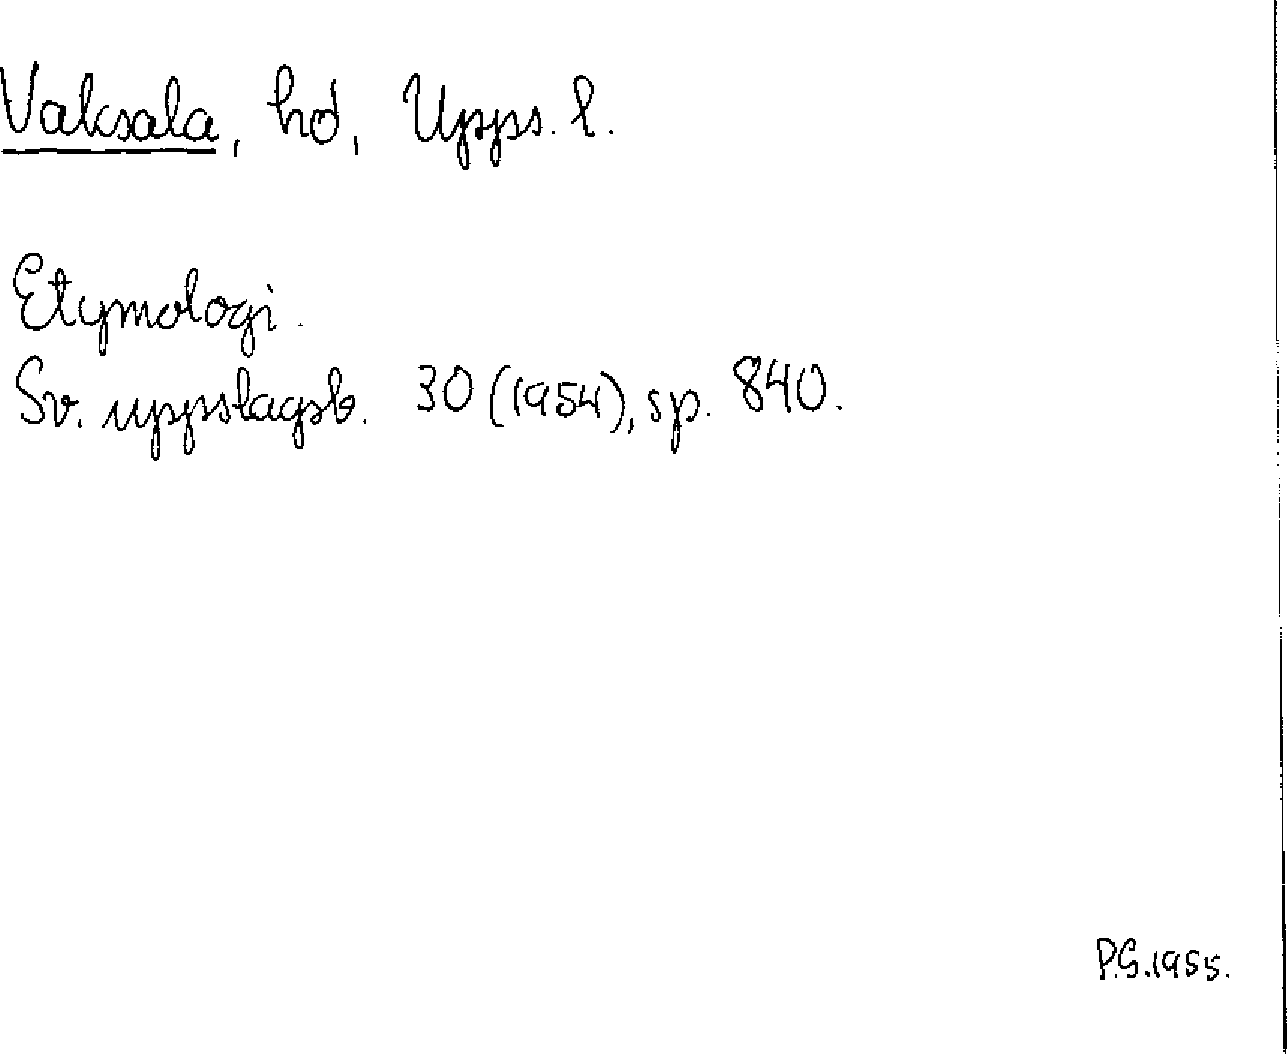 Vaksala, hd, Upps. l.
Etymologi.
Sv. uppslagsb. 30 (1954), sp. 840.
P.G. 1955.